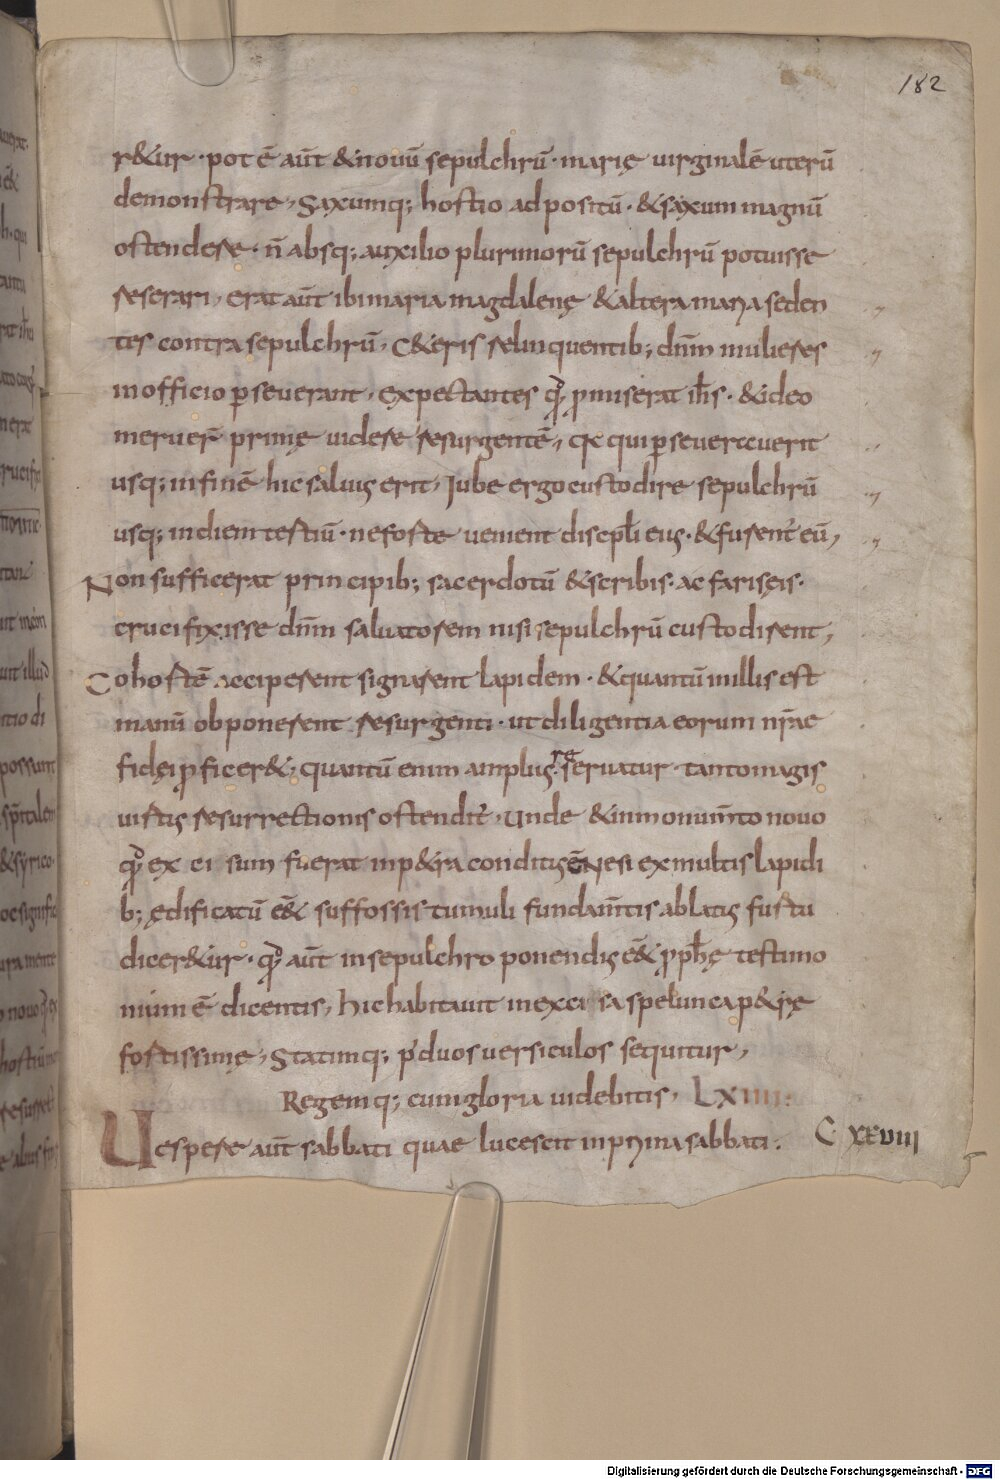 182
r&ur · pot ē aut̄ & nouū sepulchrū · marię uirginalē uterū
demonstrare, Saxumq; hostio ad positū · & saxum magnū
ostendere · n̄ absq; auxilio plurimorū sepulchrū potuisse
reserari, erat aut̄ ibi maria magdalenę & altera maria seden
tes contra sepulchrū, C&eris relinquentib; dn̄m mulieres
in officio p̱seuerant, expectantes promiserat ih̄s · & ideo
meruer̄ primę uidere resurgentē, qui p̱seuerauerit
usq; in finē hic saluus erit, Iube ergo custodire sepulchrū
usq; in diem tertiū · ne forte ueniant discipl̄i eius · & furent̄ eū,
Non sufficerat principib; sacerdotū & scribis · ac farisęis ·
crucifixisse dn̄m saluatorem nisi sepulchrū custodirent,
Cohortē acciperent signarent lapidem · & quantū in illis est
manū obponerent resurgenti · ut diligentia eorum nr̄ae
fidęi proficer&, quantū enim amplius reseruatur · tanto magis
uirtus resurrectionis ostendit̄, Unde & in monum̄to nouo
ex ci sum fuerat in p&ra conditus ē Ne si ex multis lapidi
b; ędificatū ē& suffossis tumuli fundam̄tis ablatus furtu
dicer&ur · aut̄ in sepulchro ponendus ē& proph̄ę testimo
nium ē dicentis, hic habitauit in excisa spelunca p&rę
fortissimę, Statimq; p' duos uersiculos sequitur,
Regemq; cum gloria uidebitis, LXIIII:
Uespere aut̄ sabbati quae lucescit in prima sabbati : C XXVIII
Digitalisierung gefördert durch die Deutsche Forschungsgemeinschaft - DFG